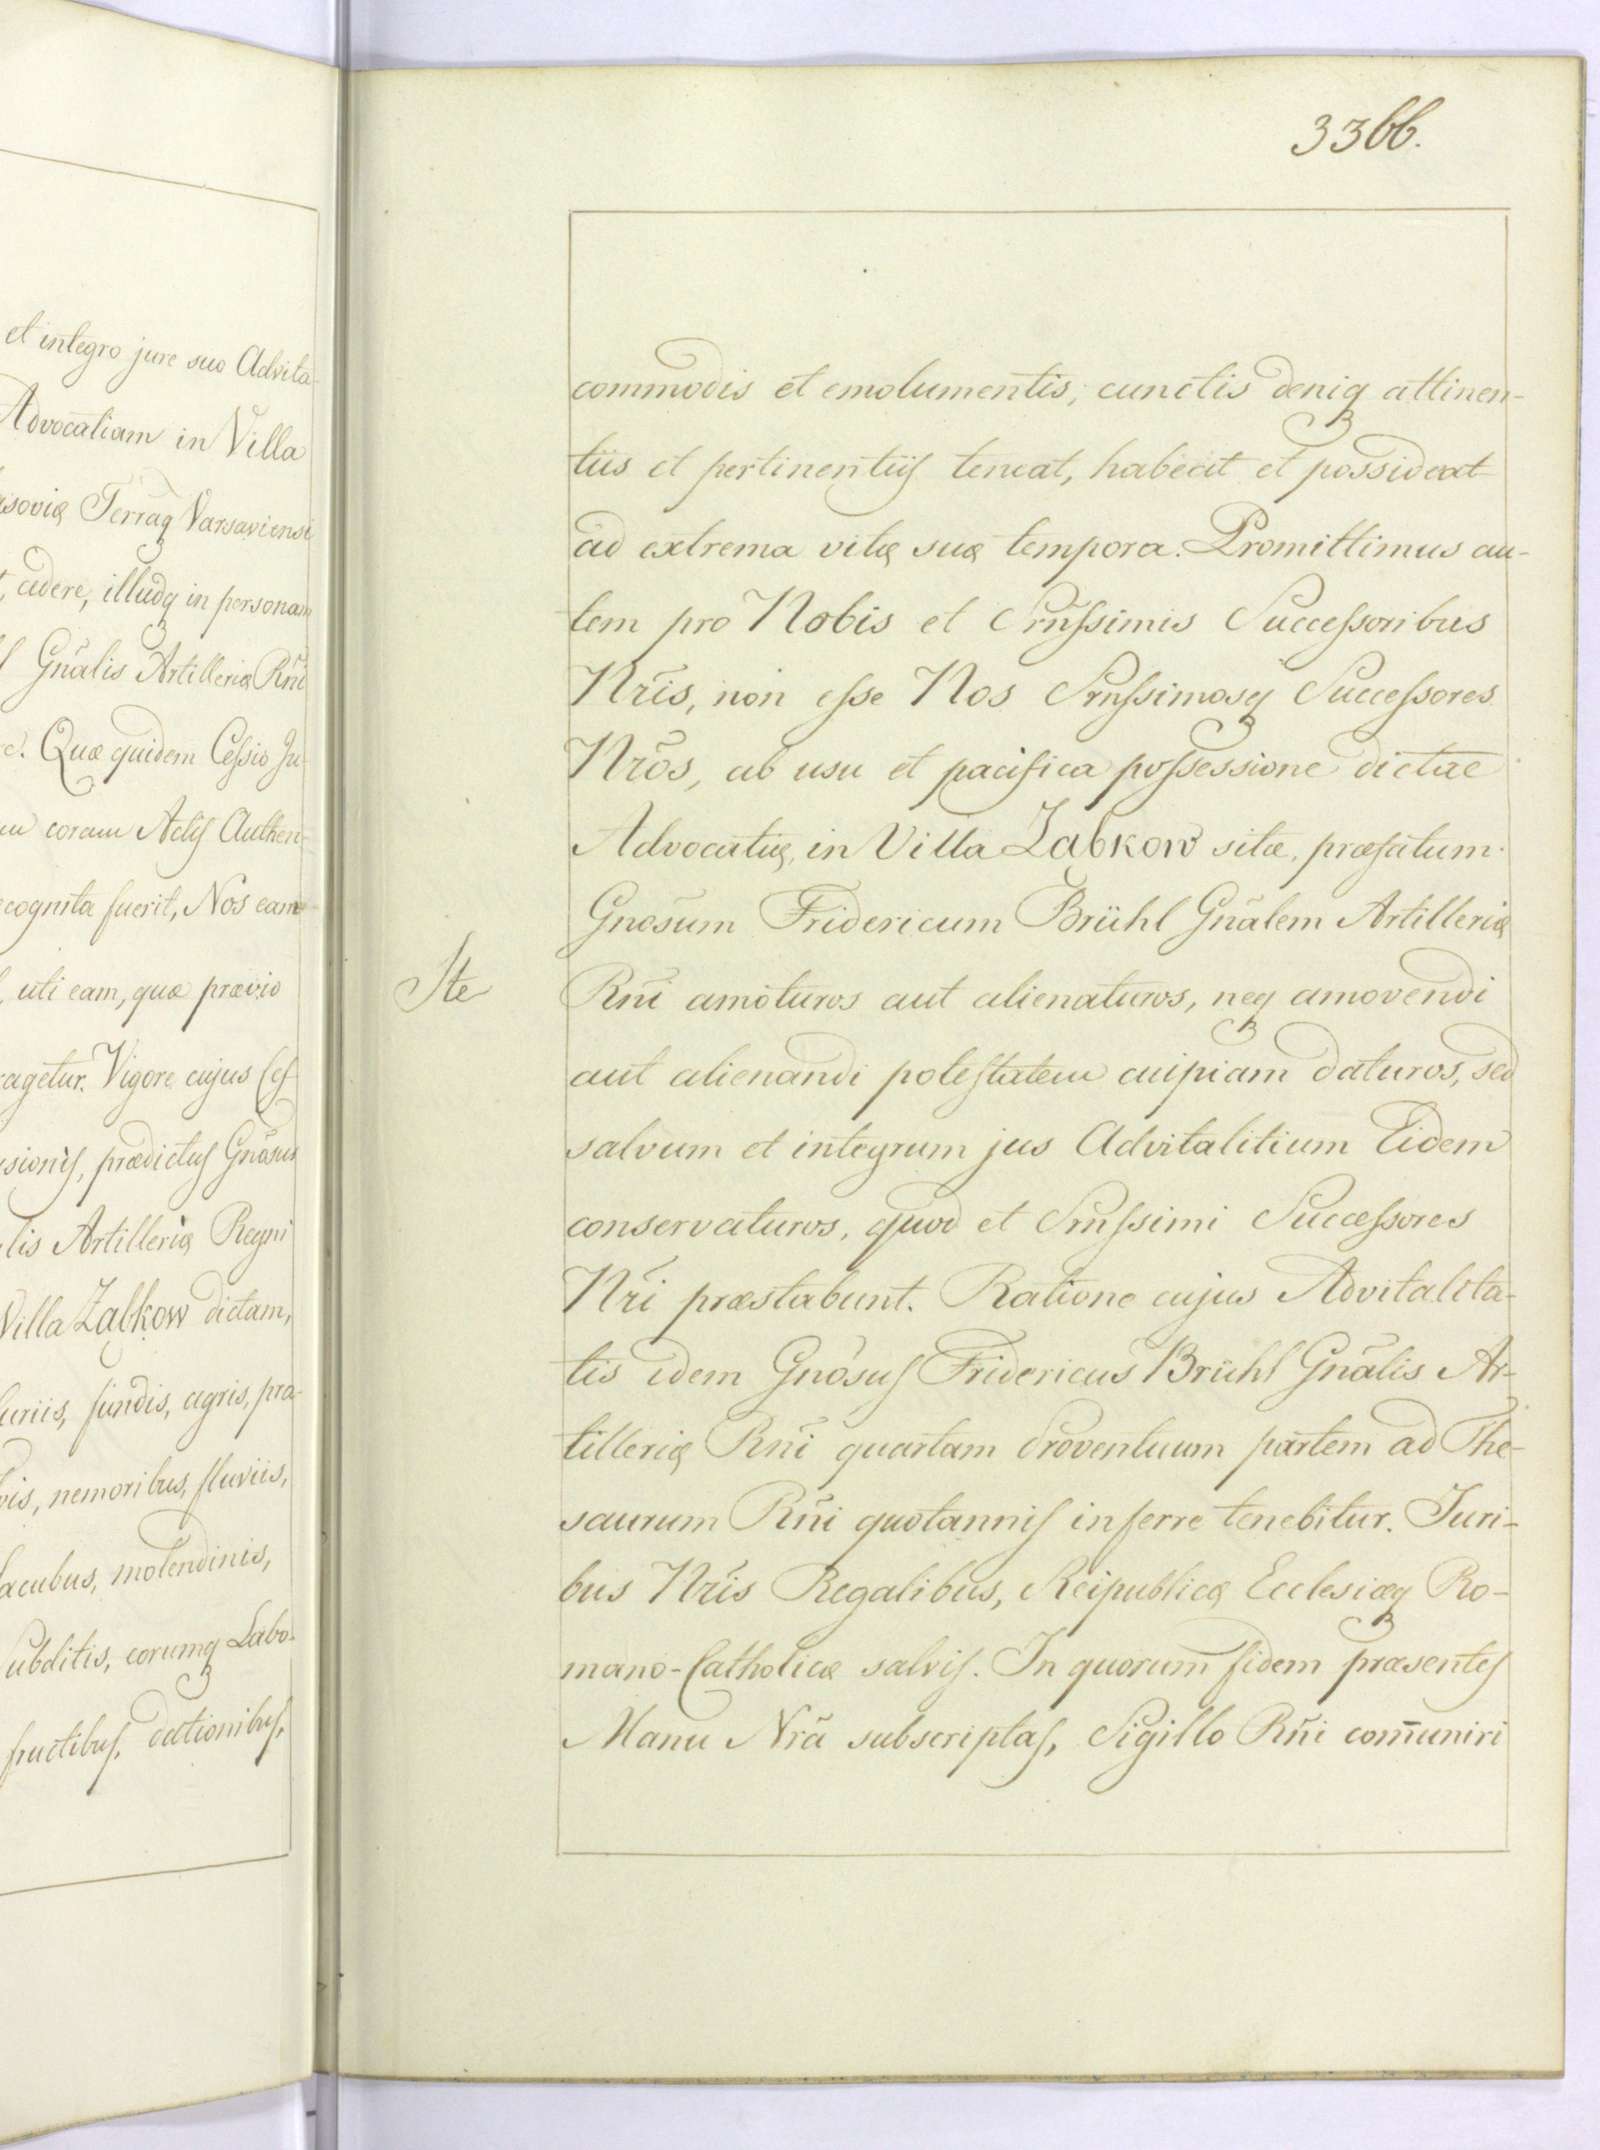 et integro jure suo Advita-
Advocatiam in Villa
Terraq Varsaviensi
cedere, illudq in personam
Gnalis Artilleriæ Rni
Quæ quidem Cessio Ju-
coram Actis Authen-
cognita fuerit, Nos eam
uti eam, quæ prævio
agetur. Vigore cujus Ces-
sionis, prædictus Gnosus
lis Artilleriæ Regni
Villa Zabkow dictam,
curiis, fundis, agris, pra-
vis, nemoribus, fluviis,
lacubus, molendinis,
Subditis, eorumq Labo-
fructibus, dationibus,
3366.
commodis et emolumentis, cunctis deniq attinen-
tiis et pertinentiis teneat, habeat et possideat
ad extrema vitæ suæ tempora. Promittimus au-
tem pro Nobis et Srnssimis Successoribus
Nris, non esse Nos Srnssimosq Successores
Nros, ab usu et pacifica possessione dictae
Advocatiæ, in Villa Zabkow sitæ, præfatum
Gnosum Fridericum Brühl Gnalem Artilleriæ
Ste
Rni amoturos aut alienaturos, neq amovendi
aut alienandi potestatem cuipiam daturos, sed
salvum et integrum jus Advitalitium Eidem
conservaturos, quod et Srnssimi Successores
Nri præstabunt. Ratione cujus Advitalita-
tis idem Gnosus Fridericus Brühl Gnalis Ar-
tilleriæ Rni quartam Proventuum partem ad The-
saurum Rni quotannis inferre tenebitur. Juri-
bus Nris Regalibus, Reipublicæ Ecclesiæq Ro-
mano-Catholicæ salvis. In quorum fidem præsentes
Manu Nra subscriptas, Sigillo Rni com̄uniri